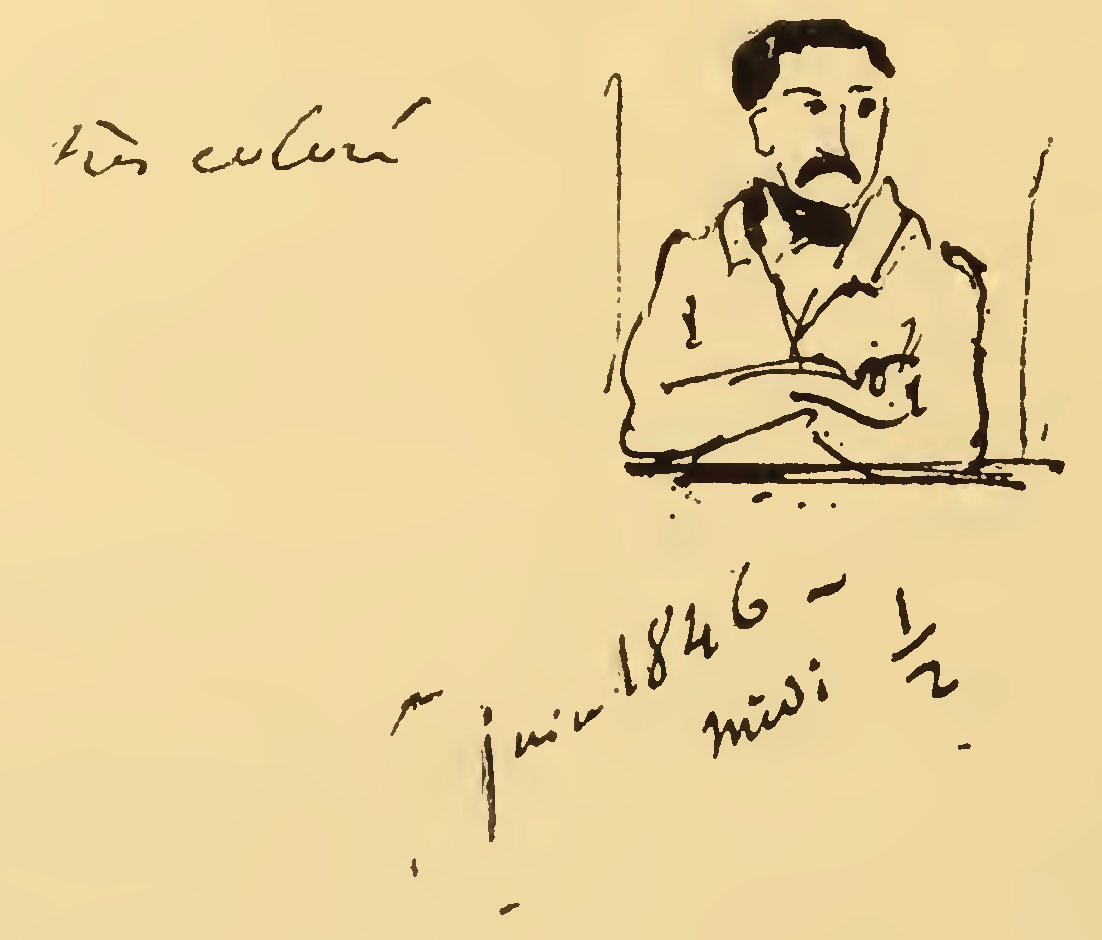 très coloré
7 juin 1846 –
midi ½